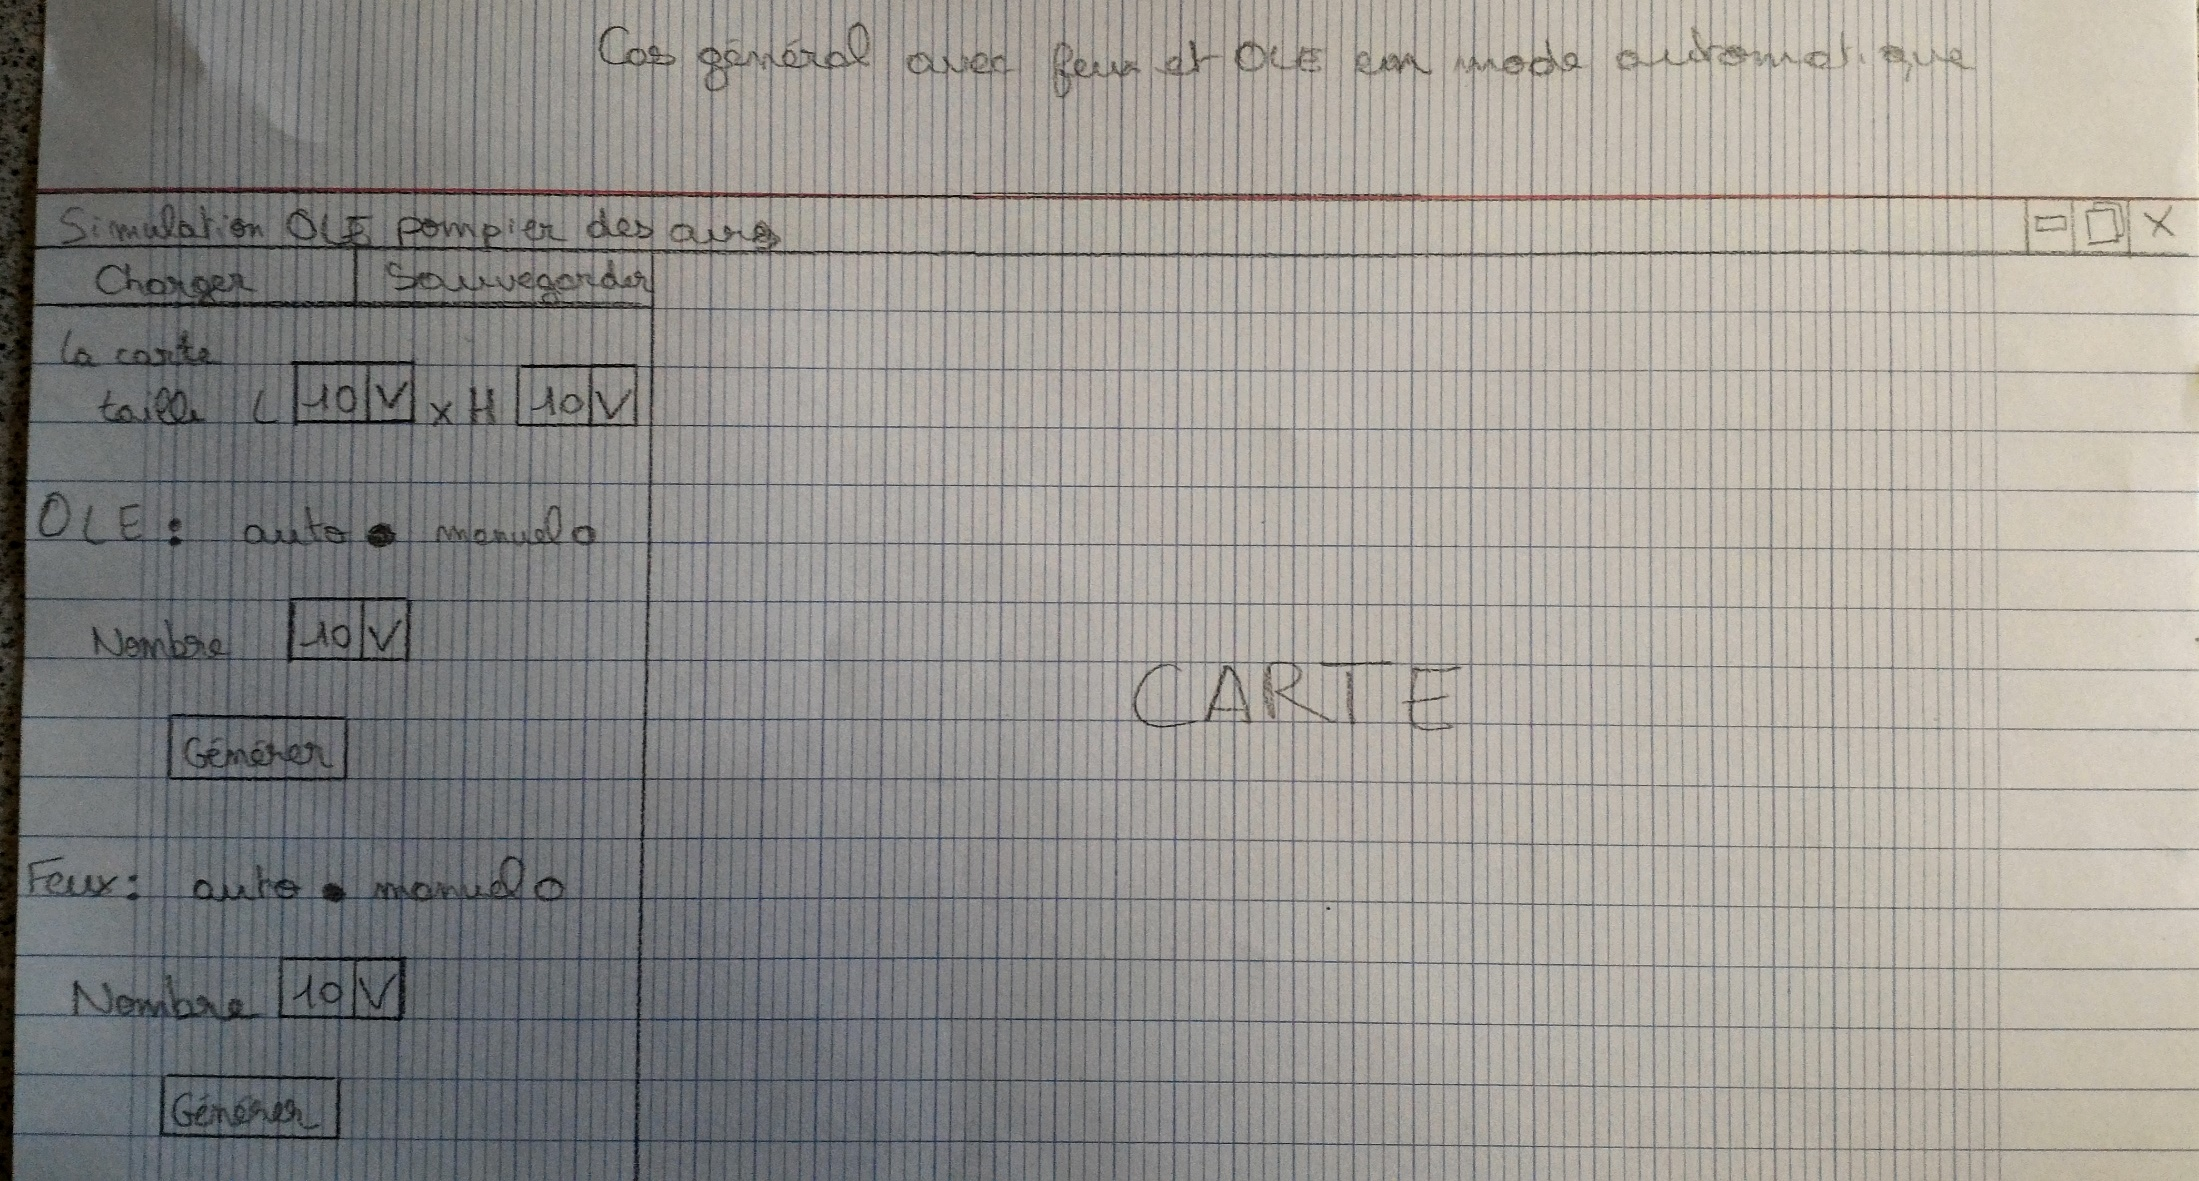 Cas général avec feux et OLE en mode automatique
Simulation OLE pompier des airs X
Charger Sauvegarder
La carte
taille L 10 V x H 10 V
OLE: auto manuel
Nombre 10 V
CARTE
Générer
Feux: auto manuel
Nombre 10 V
Générer